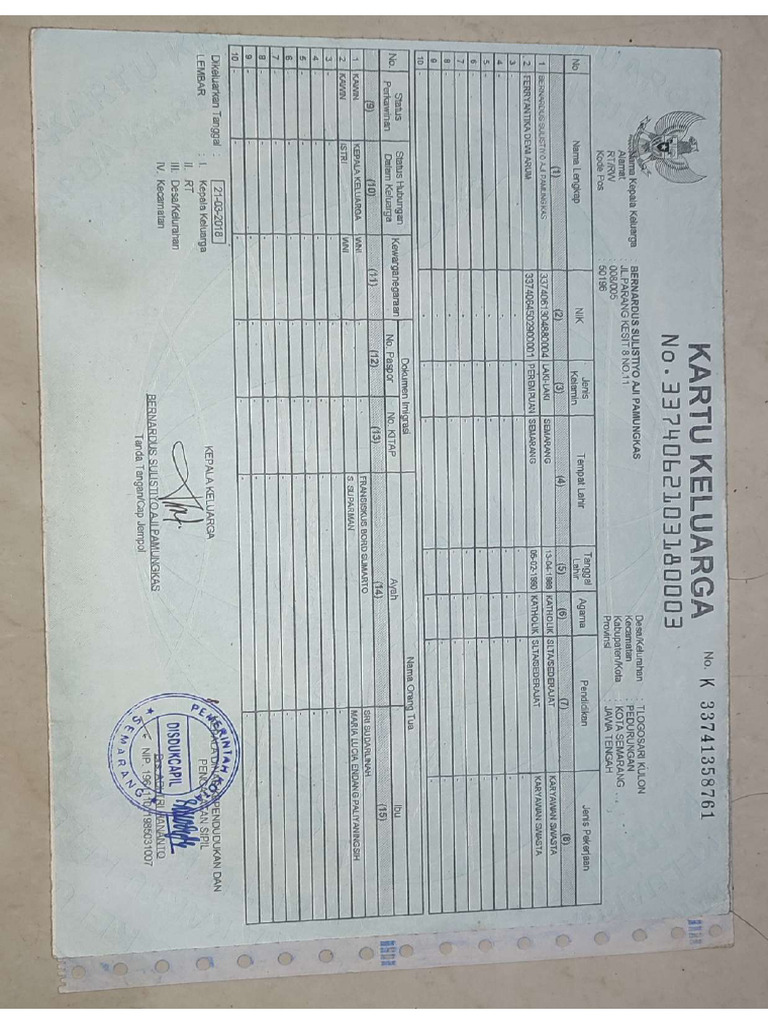 KARTU KELUARGA
No. 3374062103180003
No. K 33741358761
Nama Kepala Keluarga : BERNARDUS SULISTIYO AJI PAMUNGKAS
Alamat : JL.PARANG KESIT 8 NO.11
RT/RW : 008/005
Kode Pos : 50196
Desa/Kelurahan : TLOGOSARI KULON
Kecamatan : PEDURUNGAN
Kabupaten/Kota : KOTA SEMARANG
Provinsi : JAWA TENGAH
No Nama Lengkap NIK Jenis Kelamin Tempat Lahir Tanggal Lahir Agama Pendidikan Jenis Pekerjaan
(1) (2) (3) (4) (5) (6) (7) (8)
1 BERNARDUS SULISTIYO AJI PAMUNGKAS 3374061304880004 LAKI-LAKI SEMARANG 13-04-1988 KATHOLIK SLTA/SEDERAJAT KARYAWAN SWASTA
2 FERRYANTIKA DEWI ARUM 3374064502900001 PEREMPUAN SEMARANG 05-02-1990 KATHOLIK SLTA/SEDERAJAT KARYAWAN SWASTA
3 - - - - - - - -
4 - - - - - - - -
5 - - - - - - - -
6 - - - - - - - -
7 - - - - - - - -
8 - - - - - - - -
9 - - - - - - - -
10 - - - - - - - -
No. Status Perkawinan Status Hubungan Dalam Keluarga Kewarganegaraan Dokumen Imigrasi Nama Orang Tua
No. Paspor No. KITAP Ayah Ibu
(9) (10) (11) (12) (13) (14) (15)
1 KAWIN KEPALA KELUARGA WNI - - FRANSISKUS BORD SUMARTO SRI SUDARLINAH
2 KAWIN ISTRI WNI - - S. SUPARMAN MARIA LUCIA ENDANG PALIYANINGSIH
3 - - - - - - -
4 - - - - - - -
5 - - - - - - -
6 - - - - - - -
7 - - - - - - -
8 - - - - - - -
9 - - - - - - -
10 - - - - - - -
Dikeluarkan Tanggal : 21-03-2018
LEMBAR : I. Kepala Keluarga
II. RT
III. Desa/Kelurahan
IV. Kecamatan
KEPALA KELUARGA
BERNARDUS SULISTIYO AJI PAMUNGKAS
Tanda Tangan/Cap Jempol
PENDUDUKAN DAN
SIPIL
PEMERINTAH KOTA
DISDUKCAPIL
SEMARANG
NIP.